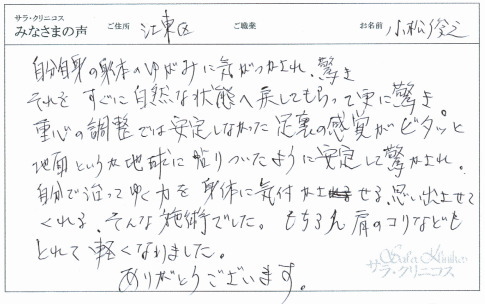 サラ・クリニコス
みなさまの声
ご住所 江東区
ご職業
お名前 小松俊之
自分自身の身体のゆがみに気がつかされ、驚き
それを すぐに自然な状態へ戻してもらって更に驚き
重心の調整では安定しなかった足裏の感覚がピタッと
地面というか地球に貼りついたように安定して驚かされ、
自分で治ってゆく力を身体に気付かせる、思い出させて
くれる、そんな施術でした。もちろん肩のコリなども
とれて軽くなりました。
ありがとうございます。
Sara Klinikos
サラ・クリニコス